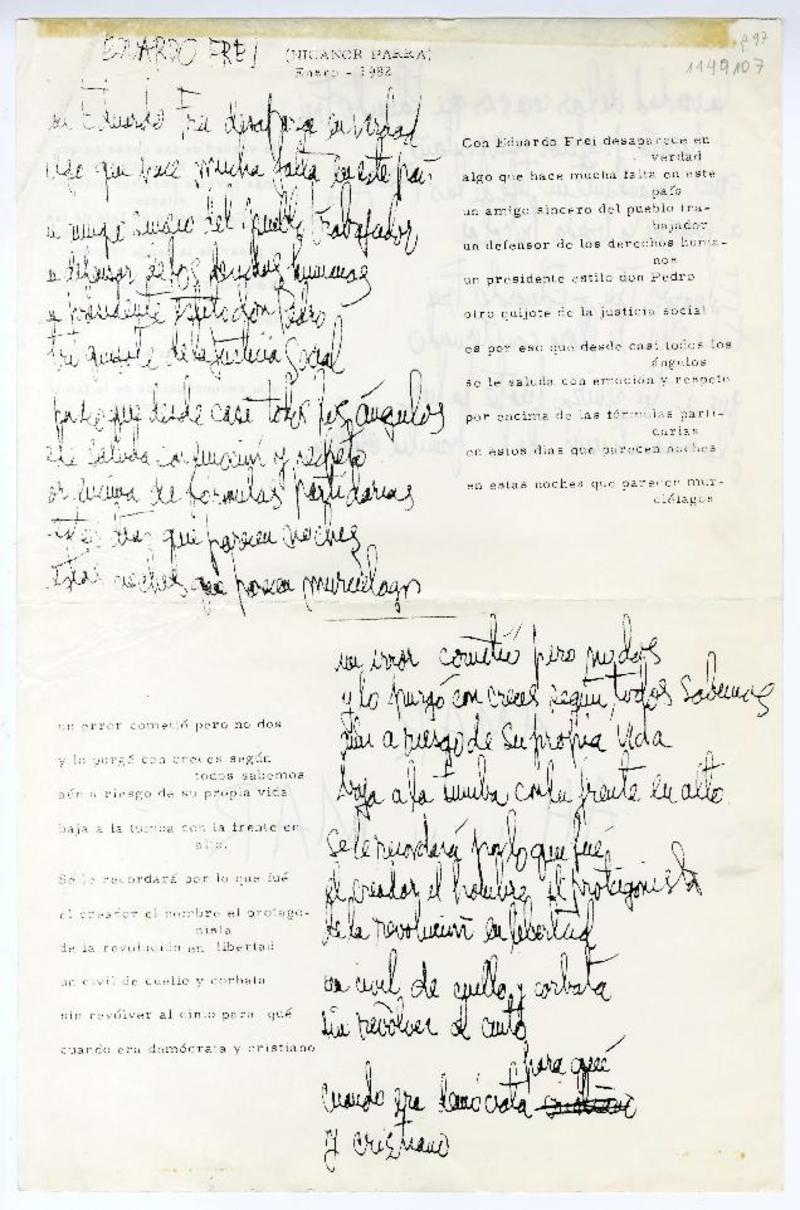 EDUARDO FREI
(NICANOR PARRA)
Enero - 1982
97
1149107
Eduardo Frei desaparece en verdad
algo que hace mucha falta en este país
un amigo sincero del pueblo trabajador
un defensor de los derechos humanos
un presidente estilo don Pedro
otro quijote de la justicia social
por eso que desde casi todos los ángulos
se le saluda con emoción y respeto
por encima de fórmulas partidarias
estos días que parecen noches
estas noches que parecen murciélagos
Con Eduardo Frei desaparece en
verdad
algo que hace mucha falta en este
país
un amigo sincero del pueblo tra-
bajador
un defensor de los derechos huma-
nos
un presidente estilo don Pedro
otro quijote de la justicia social
es por eso que desde casi todos los
ángulos
se le saluda con emoción y respeto
por encima de las fórmulas parti-
darias
en estos días que parecen noches
en estas noches que parecen mur-
ciélagos
un error cometió pero no dos
y lo purgó con creces según
todos sabemos
aún a riesgo de su propia vida
baja a la tumba con la frente en
alto.
Se le recordará por lo que fué
el creador el hombre el protago-
nista
de la revolución en libertad
un civil de cuello y corbata
sin revólver al cinto para qué
cuando era demócrata y cristiano
un error cometió pero no dos
y lo purgó con creces según todos sabemos
aún a riesgo de su propia vida
baja a la tumba con la frente en alto
se le recordará por lo que fué
el creador el hombre el protagonista
de la revolución en libertad
un civil de cuello y corbata
sin revólver al cinto
para qué
cuando era demócrata cristiano
y cristiano